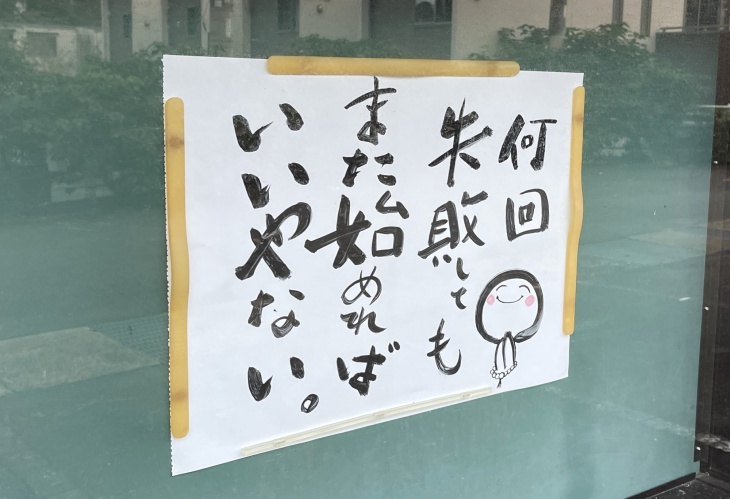 何回
失敗しても
また始めれば
いいやない。